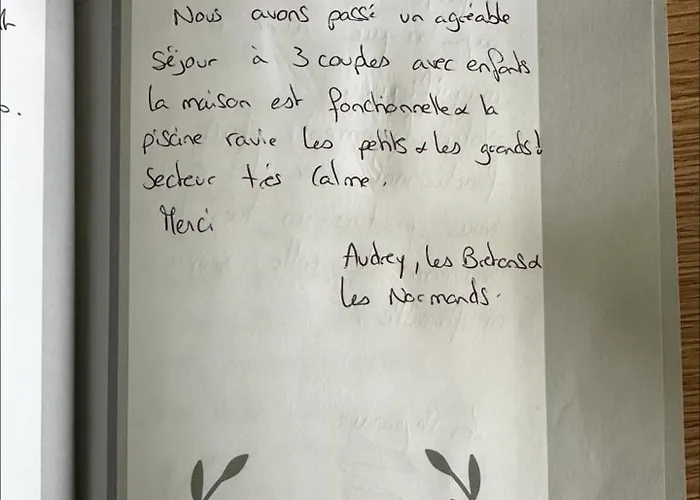 Nous avons passé un agréable
séjour à 3 couples avec enfants
la maison est fonctionnelle & la
piscine ravie les petits & les grands!
Secteur très calme.
Merci
Audrey, les Bretons &
les Normands.